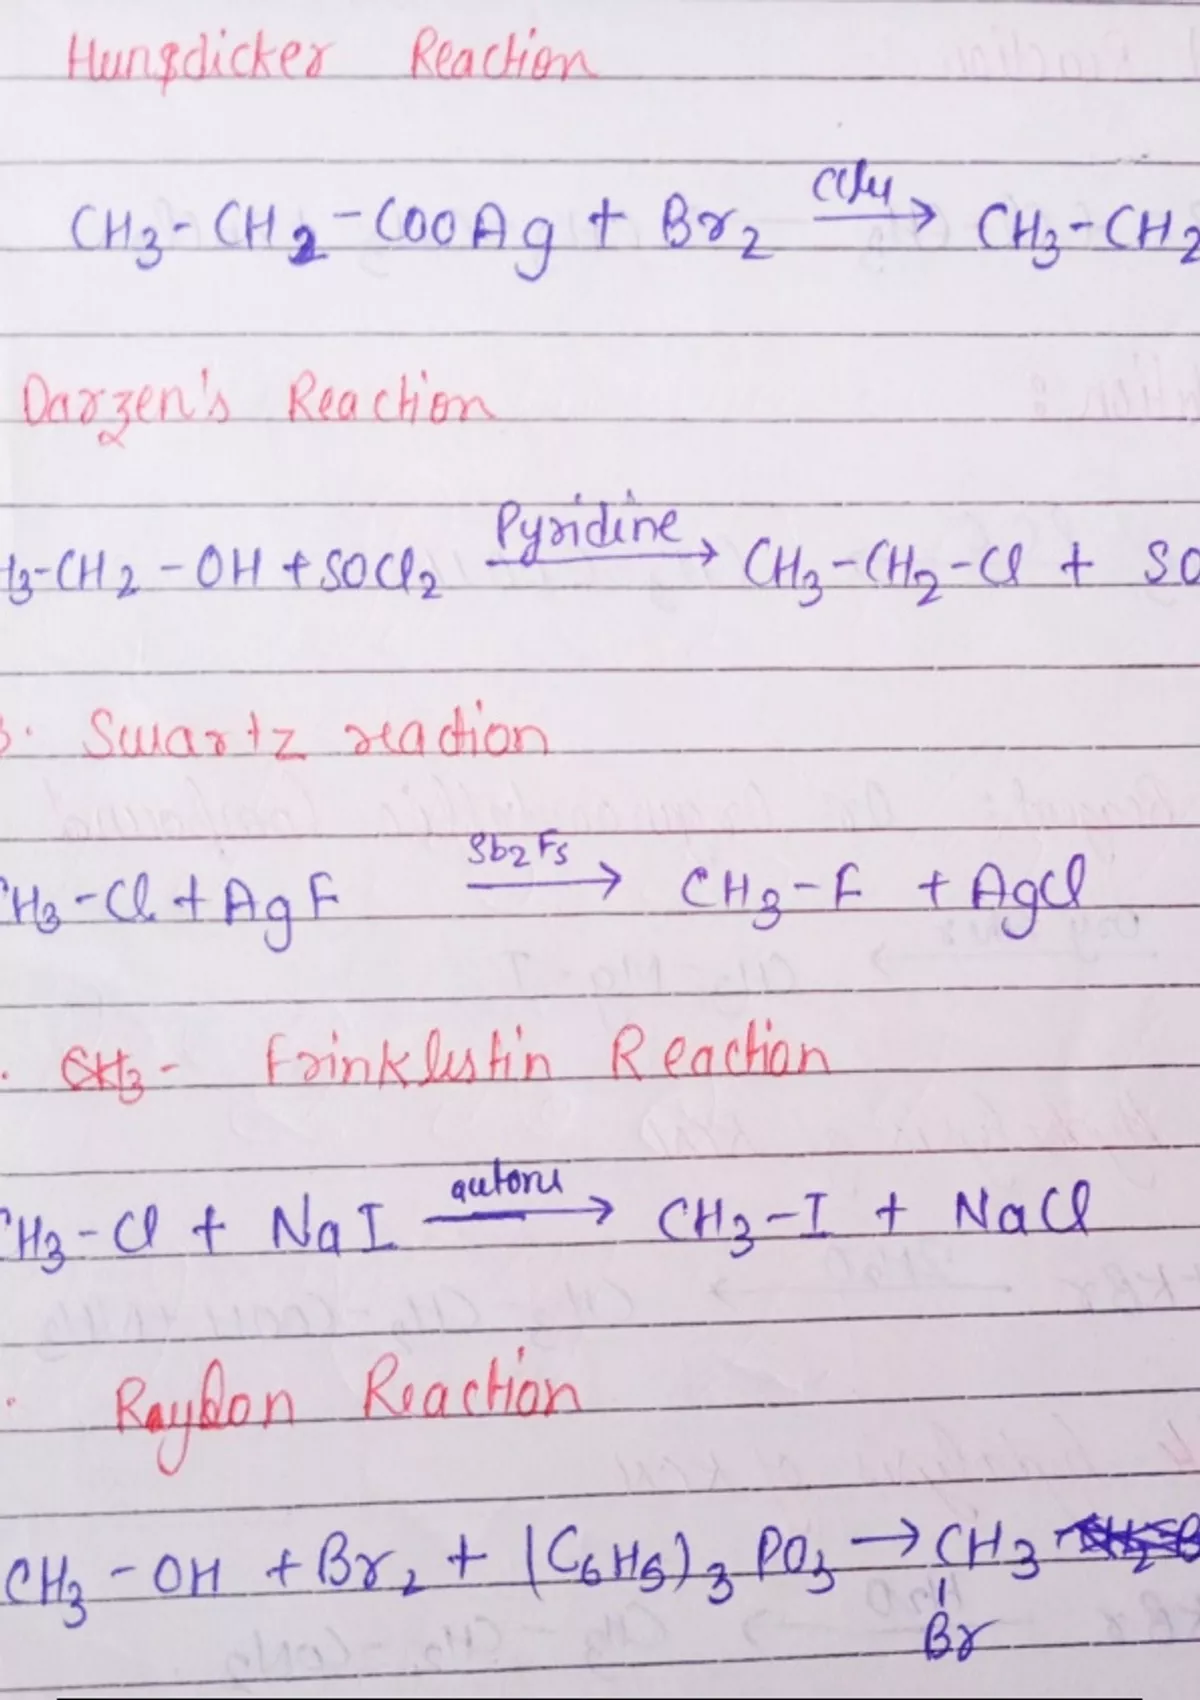 Hunsdicker Reaction
CH3-CH2-COOAg + Br2 CCl4 → CH3-CH2
Darzen's Reaction
H3-CH2-OH + SOCl2 Pyridine → CH3-CH2-Cl + SO
3. Swartz reaction
CH3-Cl + AgF Sb2F5 → CH3-F + AgCl
. CH3- Frinklestin Reaction
CH3-Cl + NaI → CH3-I + NaCl
. Raydon Reaction
CH3-OH + Br2 + (C6H5)3 PO3 → CH3
Br